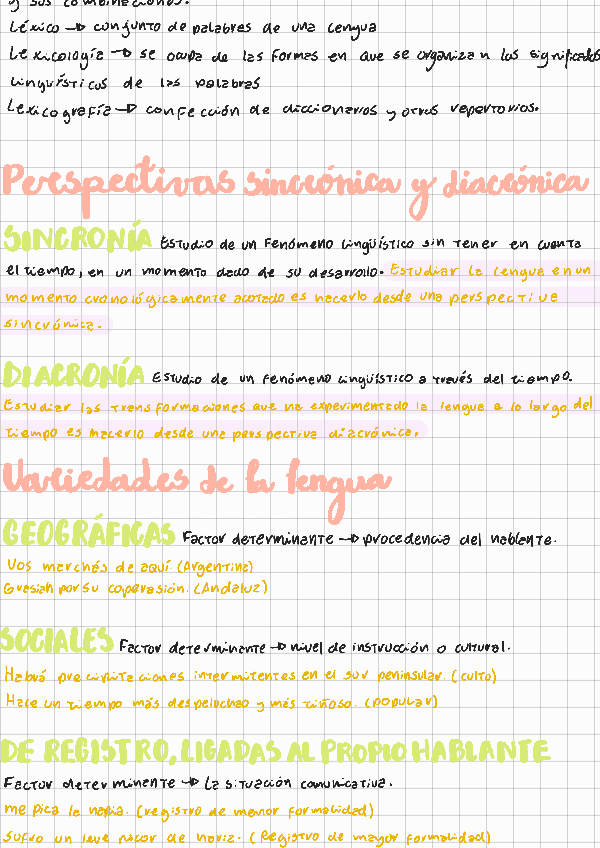 y sus combinaciones.
Léxico → conjunto de palabras de una lengua
Lexicología → se ocupa de las formas en que se organizan los significados
lingüísticos de las palabras
Lexicografía → confección de diccionarios y otros repertorios.
Perspectivas sincrónica y diacrónica
SINCRONÍA Estudio de un fenómeno lingüístico sin tener en cuenta
el tiempo, en un momento dado de su desarrollo. Estudiar la lengua en un
momento cronológicamente acotado es hacerlo desde una perspectiva
sincrónica.
DIACRONÍA Estudio de un fenómeno lingüístico a través del tiempo.
Estudiar las transformaciones que ha experimentado la lengua a lo largo del
tiempo es hacerlo desde una perspectiva diacrónica.
Variedades de la lengua
GEOGRÁFICAS Factor determinante → procedencia del hablante.
Vos marchés de aquí. (Argentina)
Gresiah por su coperasión. (Andaluz)
SOCIALES Factor determinante → nivel de instrucción o cultural.
Habrá precipitaciones intermitentes en el sur peninsular. (culto)
Hace un tiempo más despeluchao y más tiñoso. (popular)
DE REGISTRO, LIGADAS AL PROPIO HABLANTE
Factor determinante → La situación comunicativa.
me pica la napia. (registro de menor formalidad)
Sufro un leve picor de nariz. (Registro de mayor formalidad)